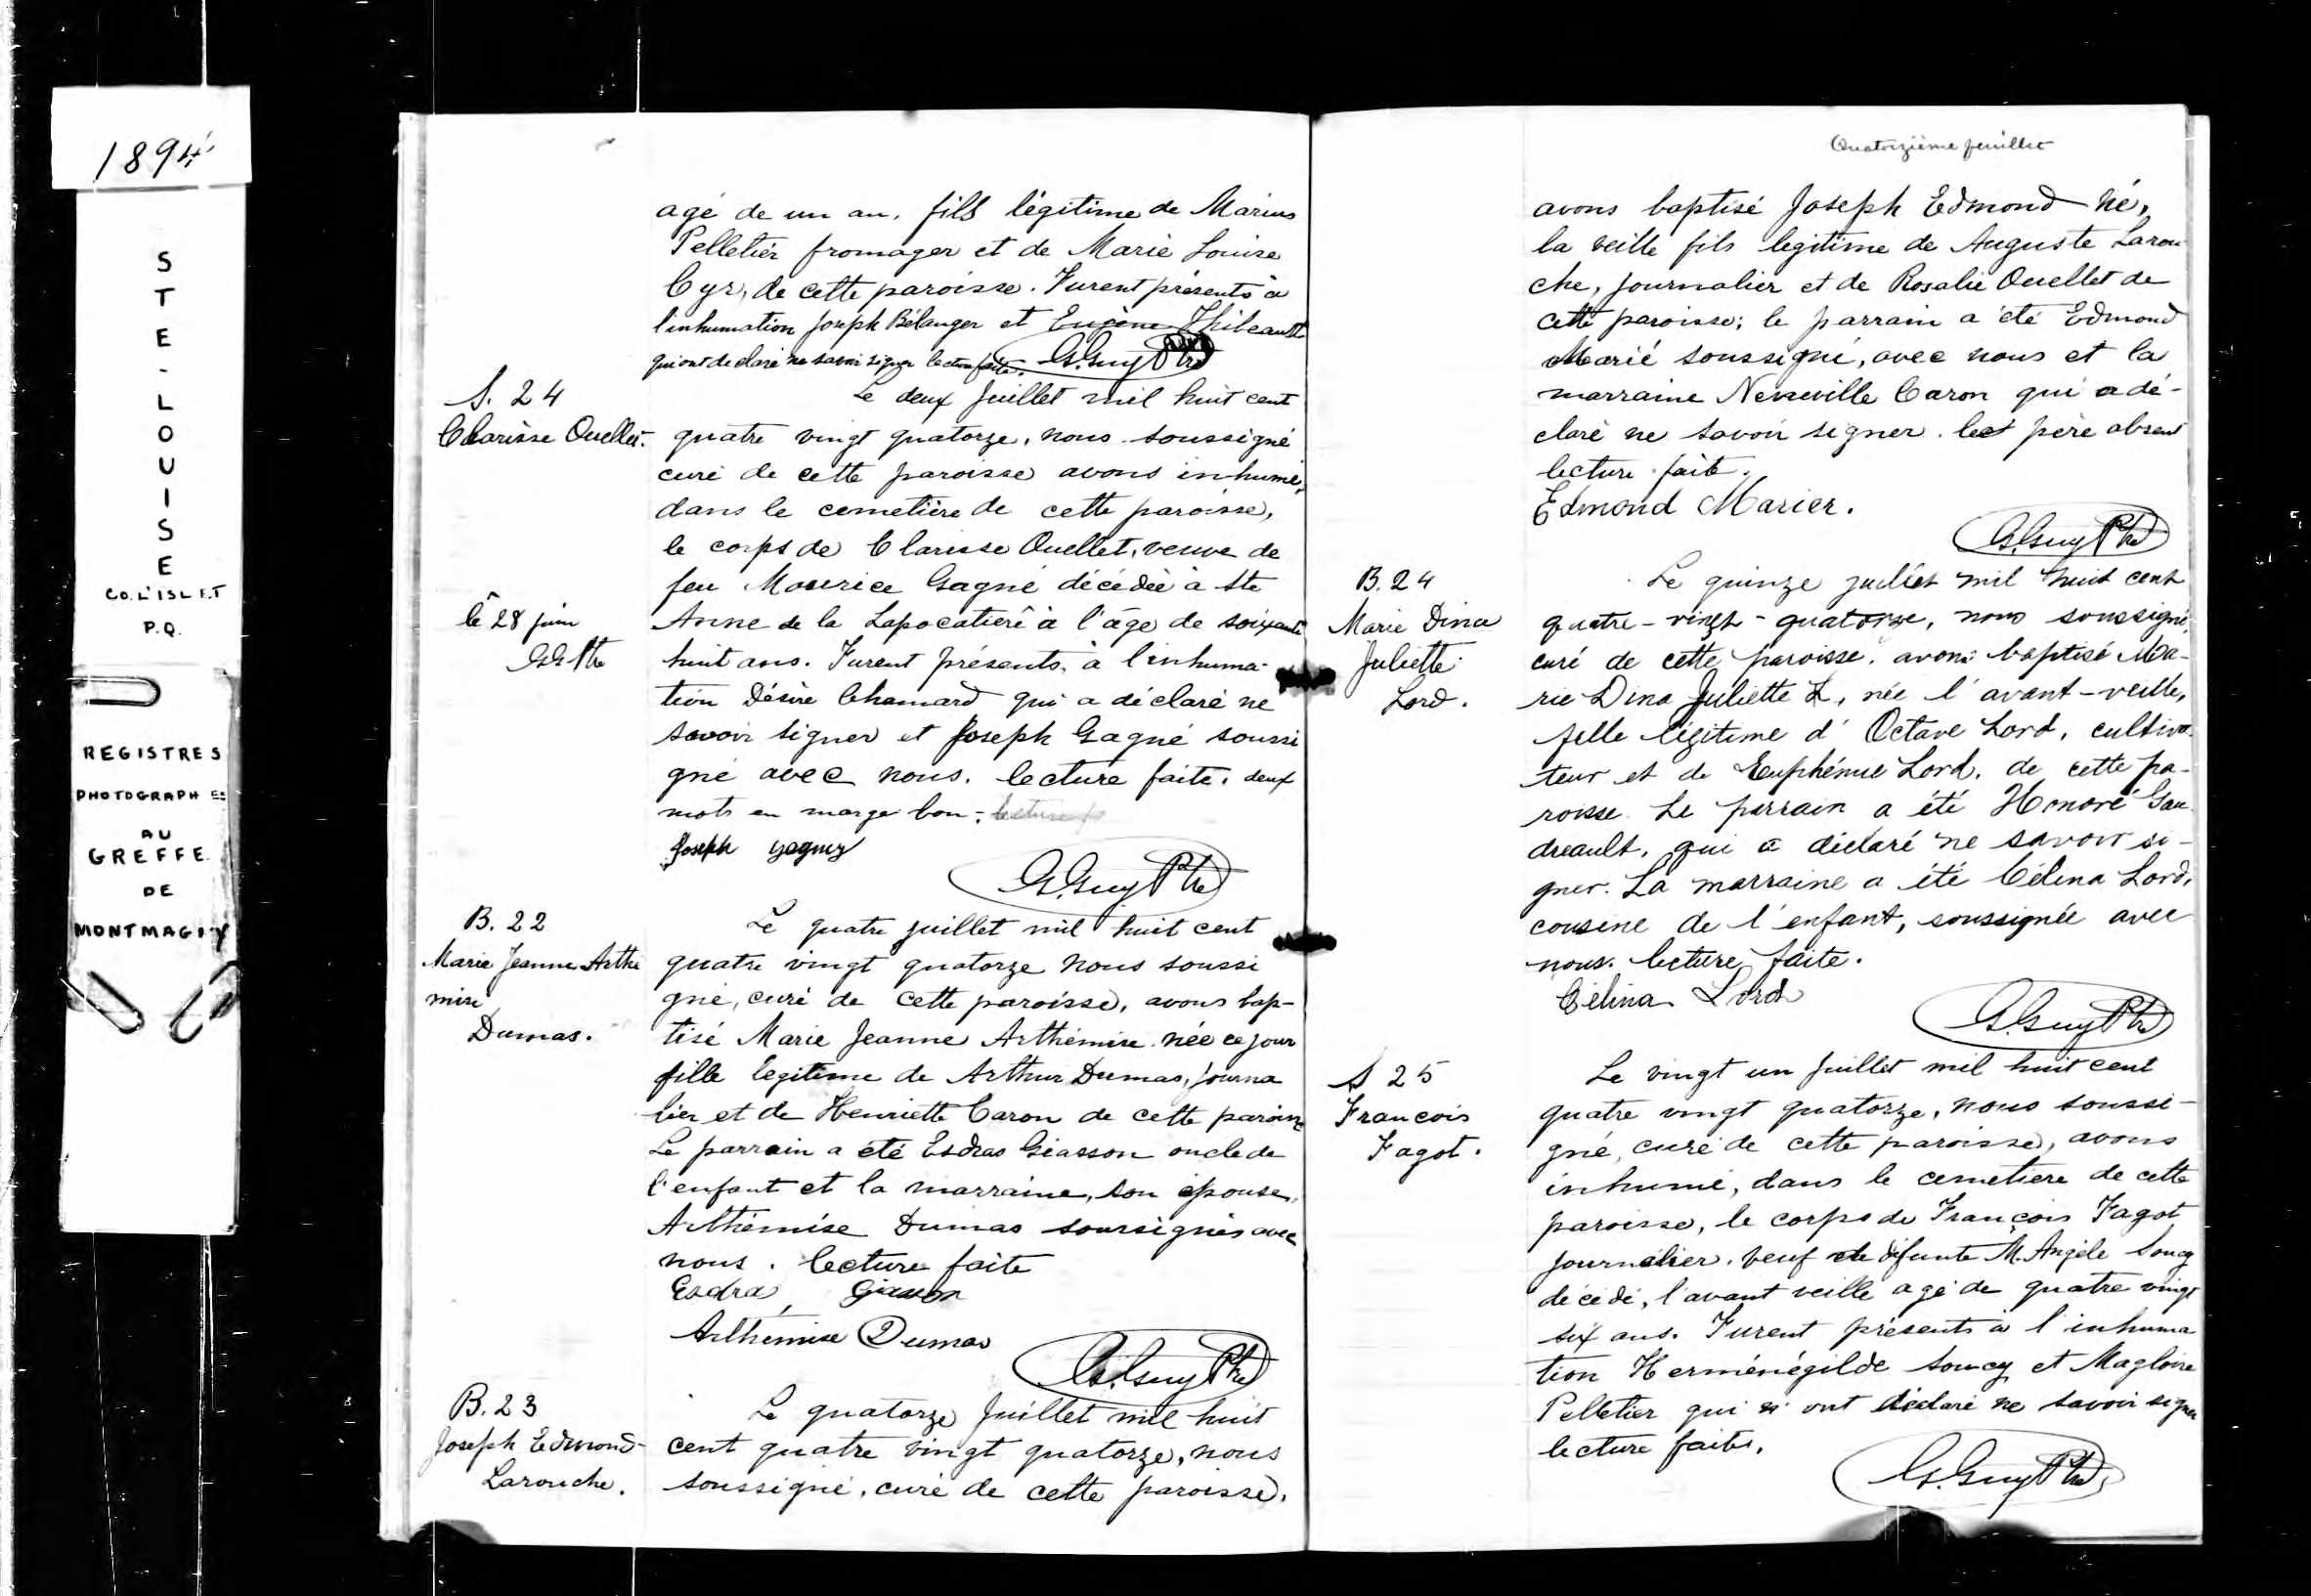 1894
S
T
E
-
L
O
U
I
S
E
CO. L'ISLET
P.Q.
REGISTRES
PHOTOGRAPHES
AU
GREFFE
DE
MONTMAGNY
agé de un an, fils légitime de Marius
Pelletier fromager et de Marie Louise
Cyr, de cette paroisse. Furent présents à
l'inhumation Joseph Bélanger et Eugène Thibeault
qui ont declaré ne savoir signer lecture faite. G. Guy Ptre
S. 24
Clarisse Ouellet.
Le deux Juillet mil huit cent
quatre vingt quatorze, nous soussigné
curé de cette paroisse avons inhumé,
dans le cemetière de cette paroisse,
le corps de Clarisse Ouellet, veuve de
feu Maurice Gagné décédée à Ste
le 28 juin
GG Ptre
Anne de la Lapocatière à l'âge de soixante
huit ans. Furent présents à l'inhuma-
tion Désiré Chamard qui a déclaré ne
savoir signer et Joseph Gagné soussi
gné avec nous. lecture faite. deux
mots en marge bon.
Joseph gagney
G. Guy Ptre
B. 22
Marie Jeanne Arthé
mise
Dumas.
Le quatre juillet mil huit cent
quatre vingt quatorze nous soussi
gné, curé de cette paroisse, avons bap-
tisé Marie Jeanne Arthémise née ce jour
fille légitime de Arthur Dumas, journa
lier et de Henriette Caron de cette paroisse
Le parrain a été Esdras Giasson oncle de
l'enfant et la marraine, son épouse,
Arthémise Dumas soussignés avec
nous. lecture faite
Esdra Giasson
Arthémise Dumas
G. Guy Ptre
B. 23
Joseph Edmond
Larouche.
Le quatorze Juillet mil huit
cent quatre vingt quatorze, nous
soussigné, curé de cette paroisse,
Quatorzième feuillet
avons baptisé Joseph Edmond né,
la veille fils legitime de Auguste Larou
che, journalier et de Rosalie Ouellet de
cette paroisse; le parrain a été Edmond
Marié soussigné, avec nous et la
marraine Caron qui a dé-
claré ne savoir signer. le père absent
lecture faite.
Edmond Marier.
G. Guy Ptre
B. 24
Marie Dina
Juliette
Lord.
Le quinze juillet mil huit cent
quatre-vingt-quatorze, nous soussigné,
curé de cette paroisse, avons baptisé Ma-
rie Dina Juliette L, née l'avant-veille,
fille légitime d'Octave Lord, cultiva-
teur et de Euphémie Lord, de cette pa-
roisse. Le parrain a été Honoré Gau
dreault, qui a déclaré ne savoir si-
gner. La marraine a été Célina Lord,
cousine de l'enfant, soussignée avec
nous. lecture faite.
Célina Lord
G. Guy Ptre
S 25
François
Fagot.
Le vingt un Juillet mil huit cent
quatre vingt quatorze, nous soussi-
gné, curé de cette paroisse, avons
inhumé, dans le cemetiere de cette
paroisse, le corps de François Fagot
journalier, veuf de défunte M. Angèle Soucy
décédé, l'avant veille agé de quatre vingt
six ans. Furent présents à l'inhuma
tion Herménégilde Soucy et Magloire
Pelletier qui ont déclaré ne savoir signer
lecture faite.
G. Guy Ptre